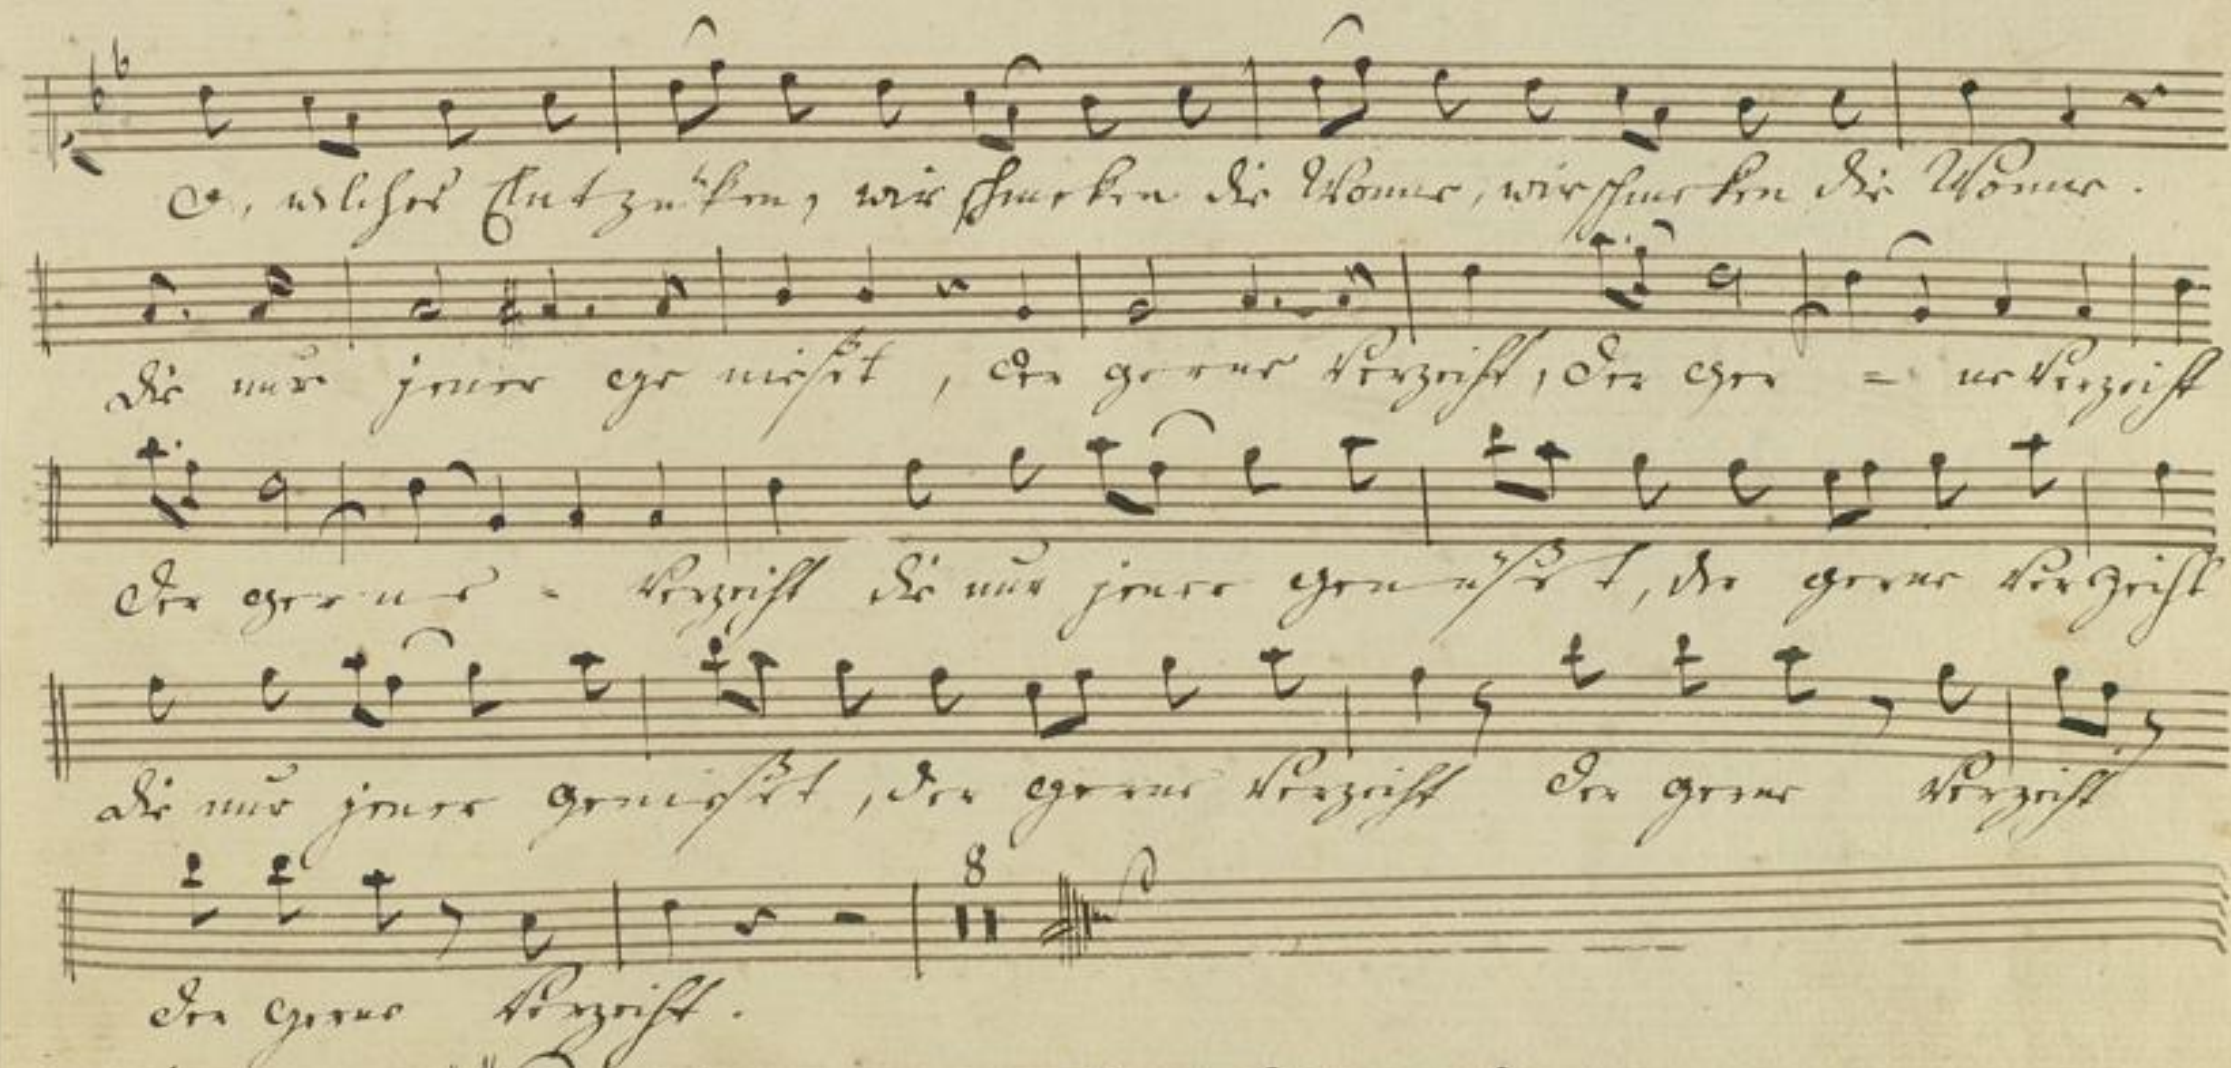 O, welches Entzüken, wir schmeken die Wonne, wir schmeken die Wonne.
die nur jener ge nießet, der gerne verzeiht, der ger = ne verzeiht
der gerne - verzeiht die nur jener genüßet, der gerne verzeiht
die nur jener genießet, der gerne verzeiht der gerne verzeiht
8
der gerne verzeiht.